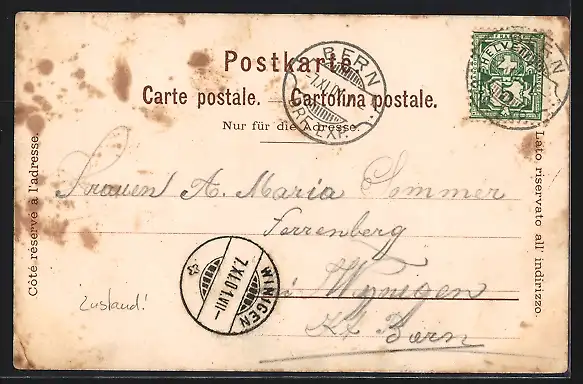 Postkarte.
Carte postale. — Cartolina postale.
Nur für die Adresse.
Côté réservé à l'adresse.
Lato riservato all' indirizzo.
BERN
7.XI.
BRF. EXP.
HELVETIA
Frauen A. Maria Sommer
Ferrenberg
Wynigen
Kt Bern
WINIGEN
7.XI.01.VII
Zustand!